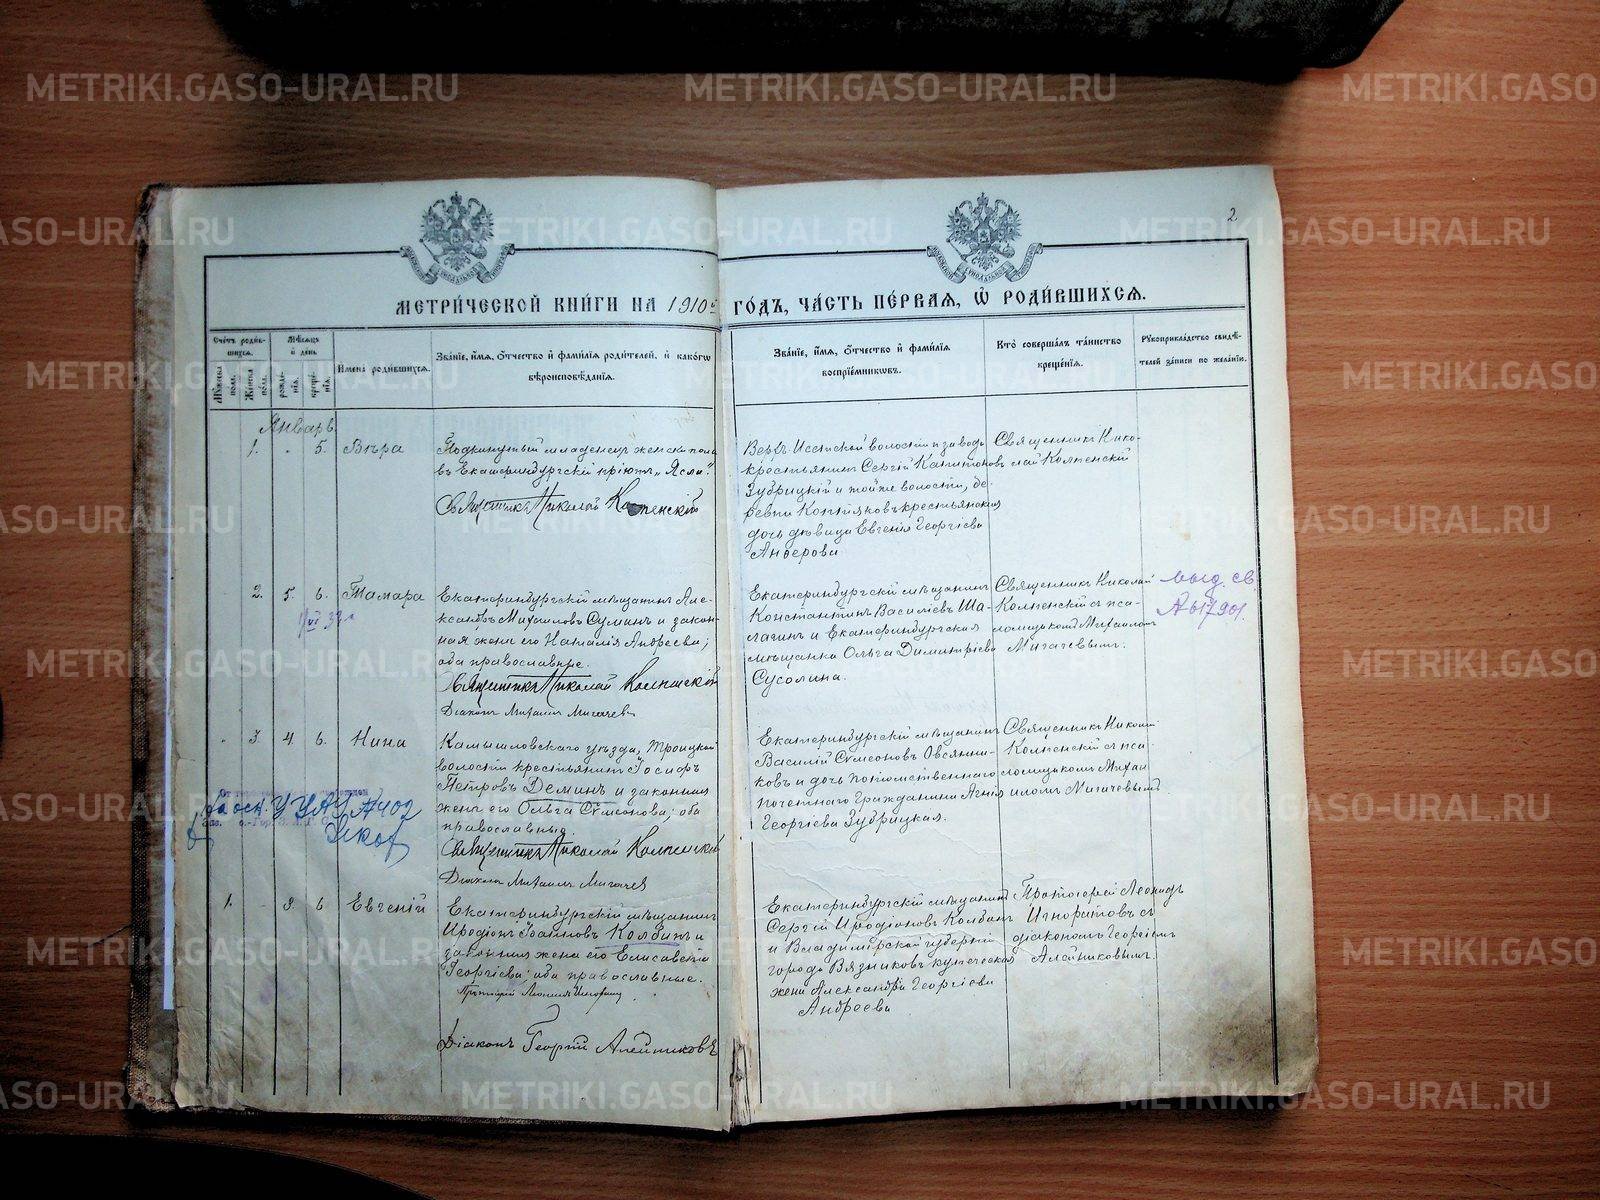 METRIKI.GASO-URAL.RU
МЕТРИ́ЧЕСКОЙ КНИ́ГИ НА 1910 й
ГО́ДЪ, ЧА́СТЬ ПЕ́РВАЯ, Ѡ РОДИ́ВШИХСЯ.
2
Сче́тъ роди́вшихся.
Му́жеска пола.
Же́нска по́ла.
Мѣ́сяцъ и день
рожде́нїя.
креще́нїя.
Имена роди́вшихся.
Зва́нїе, и́мя, о́тчество и фами́лїя роди́телей, и како́гѡ
вѣроисповѣ́данїя.
Зва́нїе, и́мя, о́тчество и фами́лїя
воспрїе́мникѡвъ.
Кто̀ соверша́лъ та́инство
креще́нїя.
Рꙋкоприкла́дство свидѣ́телей за́писи по жела́нїю.
Январь
1. 5. Вѣра
Подкинутый младенецъ женска пола
въ Екатеринбургскій пріютъ „Ясли".
Священникъ Николай
Верхъ-Исетской волости и завода
крестьянинъ Сергій Капитоновъ
Зубрицкій и той же волости, де-
ревни крестьянская
дочь дѣвица Евгенія Георгіева
Священникъ Нико-
лай Колпенскій
2. 5. 6. Тамара
Екатеринбургскій мѣщанинъ Але-
ксандръ Михаиловъ Суминъ и закон-
ная жена его Наталія Андреева;
оба православные.
Священникъ Николай Колпенскій
Діаконъ Михаилъ Мигачевъ
Екатеринбургскій мѣщанинъ
Константинъ Василіевъ Ша-
лагинъ и Екатеринбургская
мѣщанка Ольга Димитріева
Сусолина.
Священникъ Николай
Колпенскій съ пса-
ломщикомъ Михаиломъ
Мигачевымъ.
выд. св.
3. 4. 6. Нина
Камышловскаго уѣзда, Троицкой
волости крестьянинъ Іосифъ
Петровъ Деминъ и законная
жена его Ольга Сѵмеонова; оба
православные.
Священникъ Николай Колпенскій
Діаконъ Михаилъ Мигачев
Екатеринбургскій мѣщанинъ
Василій Сѵмеоновъ Овсянни-
ковъ и дочь потомственнаго
почетнаго Гражданина Агнія
Георгіева Зубрицкая.
Священникъ Николай
Колпенскій съ пса-
ломщикомъ Миха
иломъ Мигачевымъ
1. 3. 6 Евгеній
Екатеринбургскій мѣщанинъ
Иродіонъ Іоанновъ Колбинъ и
законная жена его Елисавета
Георгіева: оба православные.
Діаконъ Георгій Алейниковъ
Екатеринбургскій мѣщанинъ
Сергій Иродіоновъ Колбинъ
и Владимірской губерніи
города Вязниковъ купеческая
жена Александра Георгіева
Андреева
Протоіерей Леонидъ
Игноратовъ съ
діакономъ Георгіемъ
Алейниковымъ.